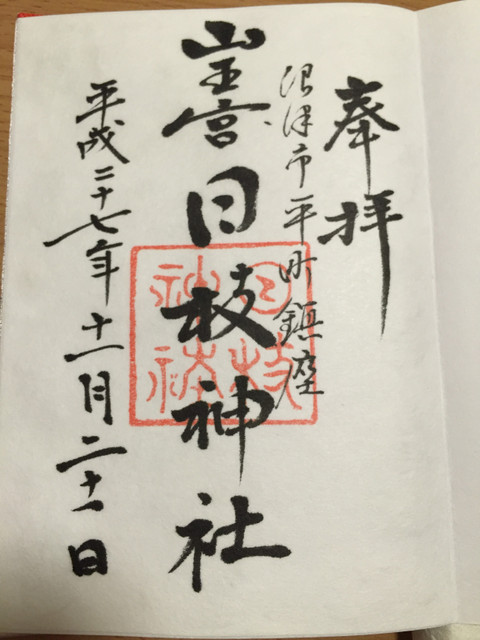 奉拝
沼津市平町鎮座
山王宮日枝神社
日枝神社
平成二十七年十一月二十一日